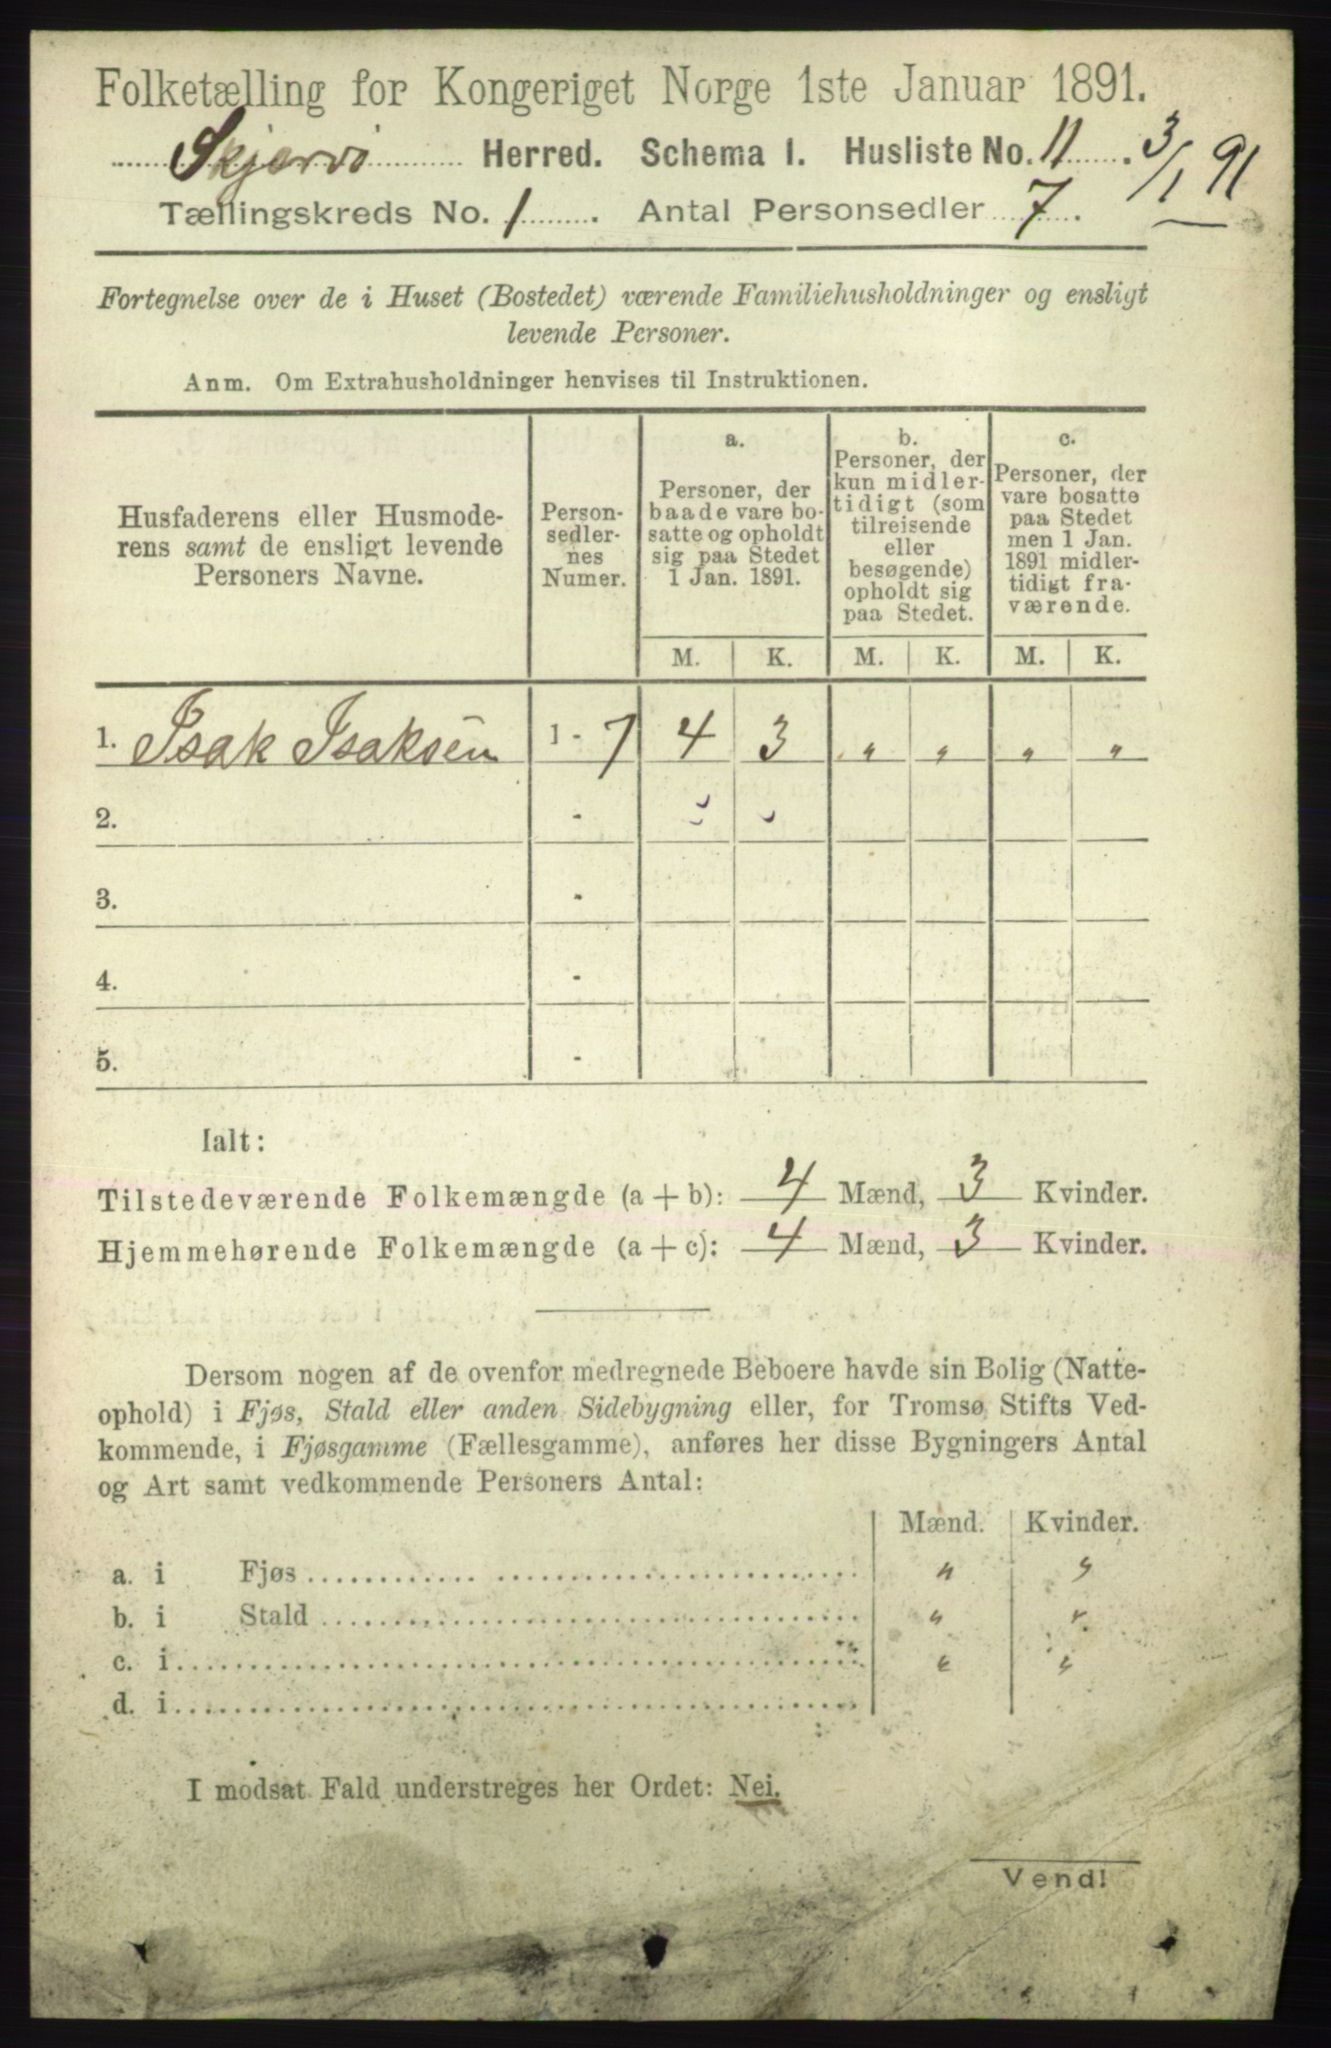 Folketælling for Kongeriget Norge 1ste Januar 1891.
Skjervø Herred. Schema 1. Husliste No. 11. 3/1 91
Tællingskreds No. 1. Antal Personsedler 7.
Fortegnelse over de i Huset (Bostedet) værende Familiehusholdninger og ensligt
levende Personer.
Anm. Om Extrahusholdninger henvises til Instruktionen.
Husfaderens eller Husmode-
rens samt de ensligt levende
Personers Navne.
Person-
sedler-
nes
Numer.
a.
Personer, der
baade vare bo-
satte og opholdt
sig paa Stedet
1 Jan. 1891.
b.
Personer, der
kun midler-
tidigt (som
tilreisende
eller
besøgende)
opholdt sig
paa Stedet.
c.
Personer, der
vare bosatte
paa Stedet
men 1 Jan.
1891 midler-
tidigt fra-
værende.
M. K. M. K. M. K.
1. Isak Isaksen 1 - 7 4 3 „ „ „ „
2. -
3. -
4. -
5. -
Ialt:
Tilstedeværende Folkemængde (a + b): 4 Mænd, 3 Kvinder.
Hjemmehørende Folkemængde (a + c): 4 Mænd, 3 Kvinder.
Dersom nogen af de ovenfor medregnede Beboere havde sin Bolig (Natte-
ophold) i Fjøs, Stald eller anden Sidebygning eller, for Tromsø Stifts Ved-
kommende, i Fjøsgamme (Fællesgamme), anføres her disse Bygningers Antal
og Art samt vedkommende Personers Antal:
Mænd. Kvinder.
a. i Fjøs „ „
b. i Stald „ „
c. i „ „
d. i
I modsat Fald understreges her Ordet: Nei.
Vend!